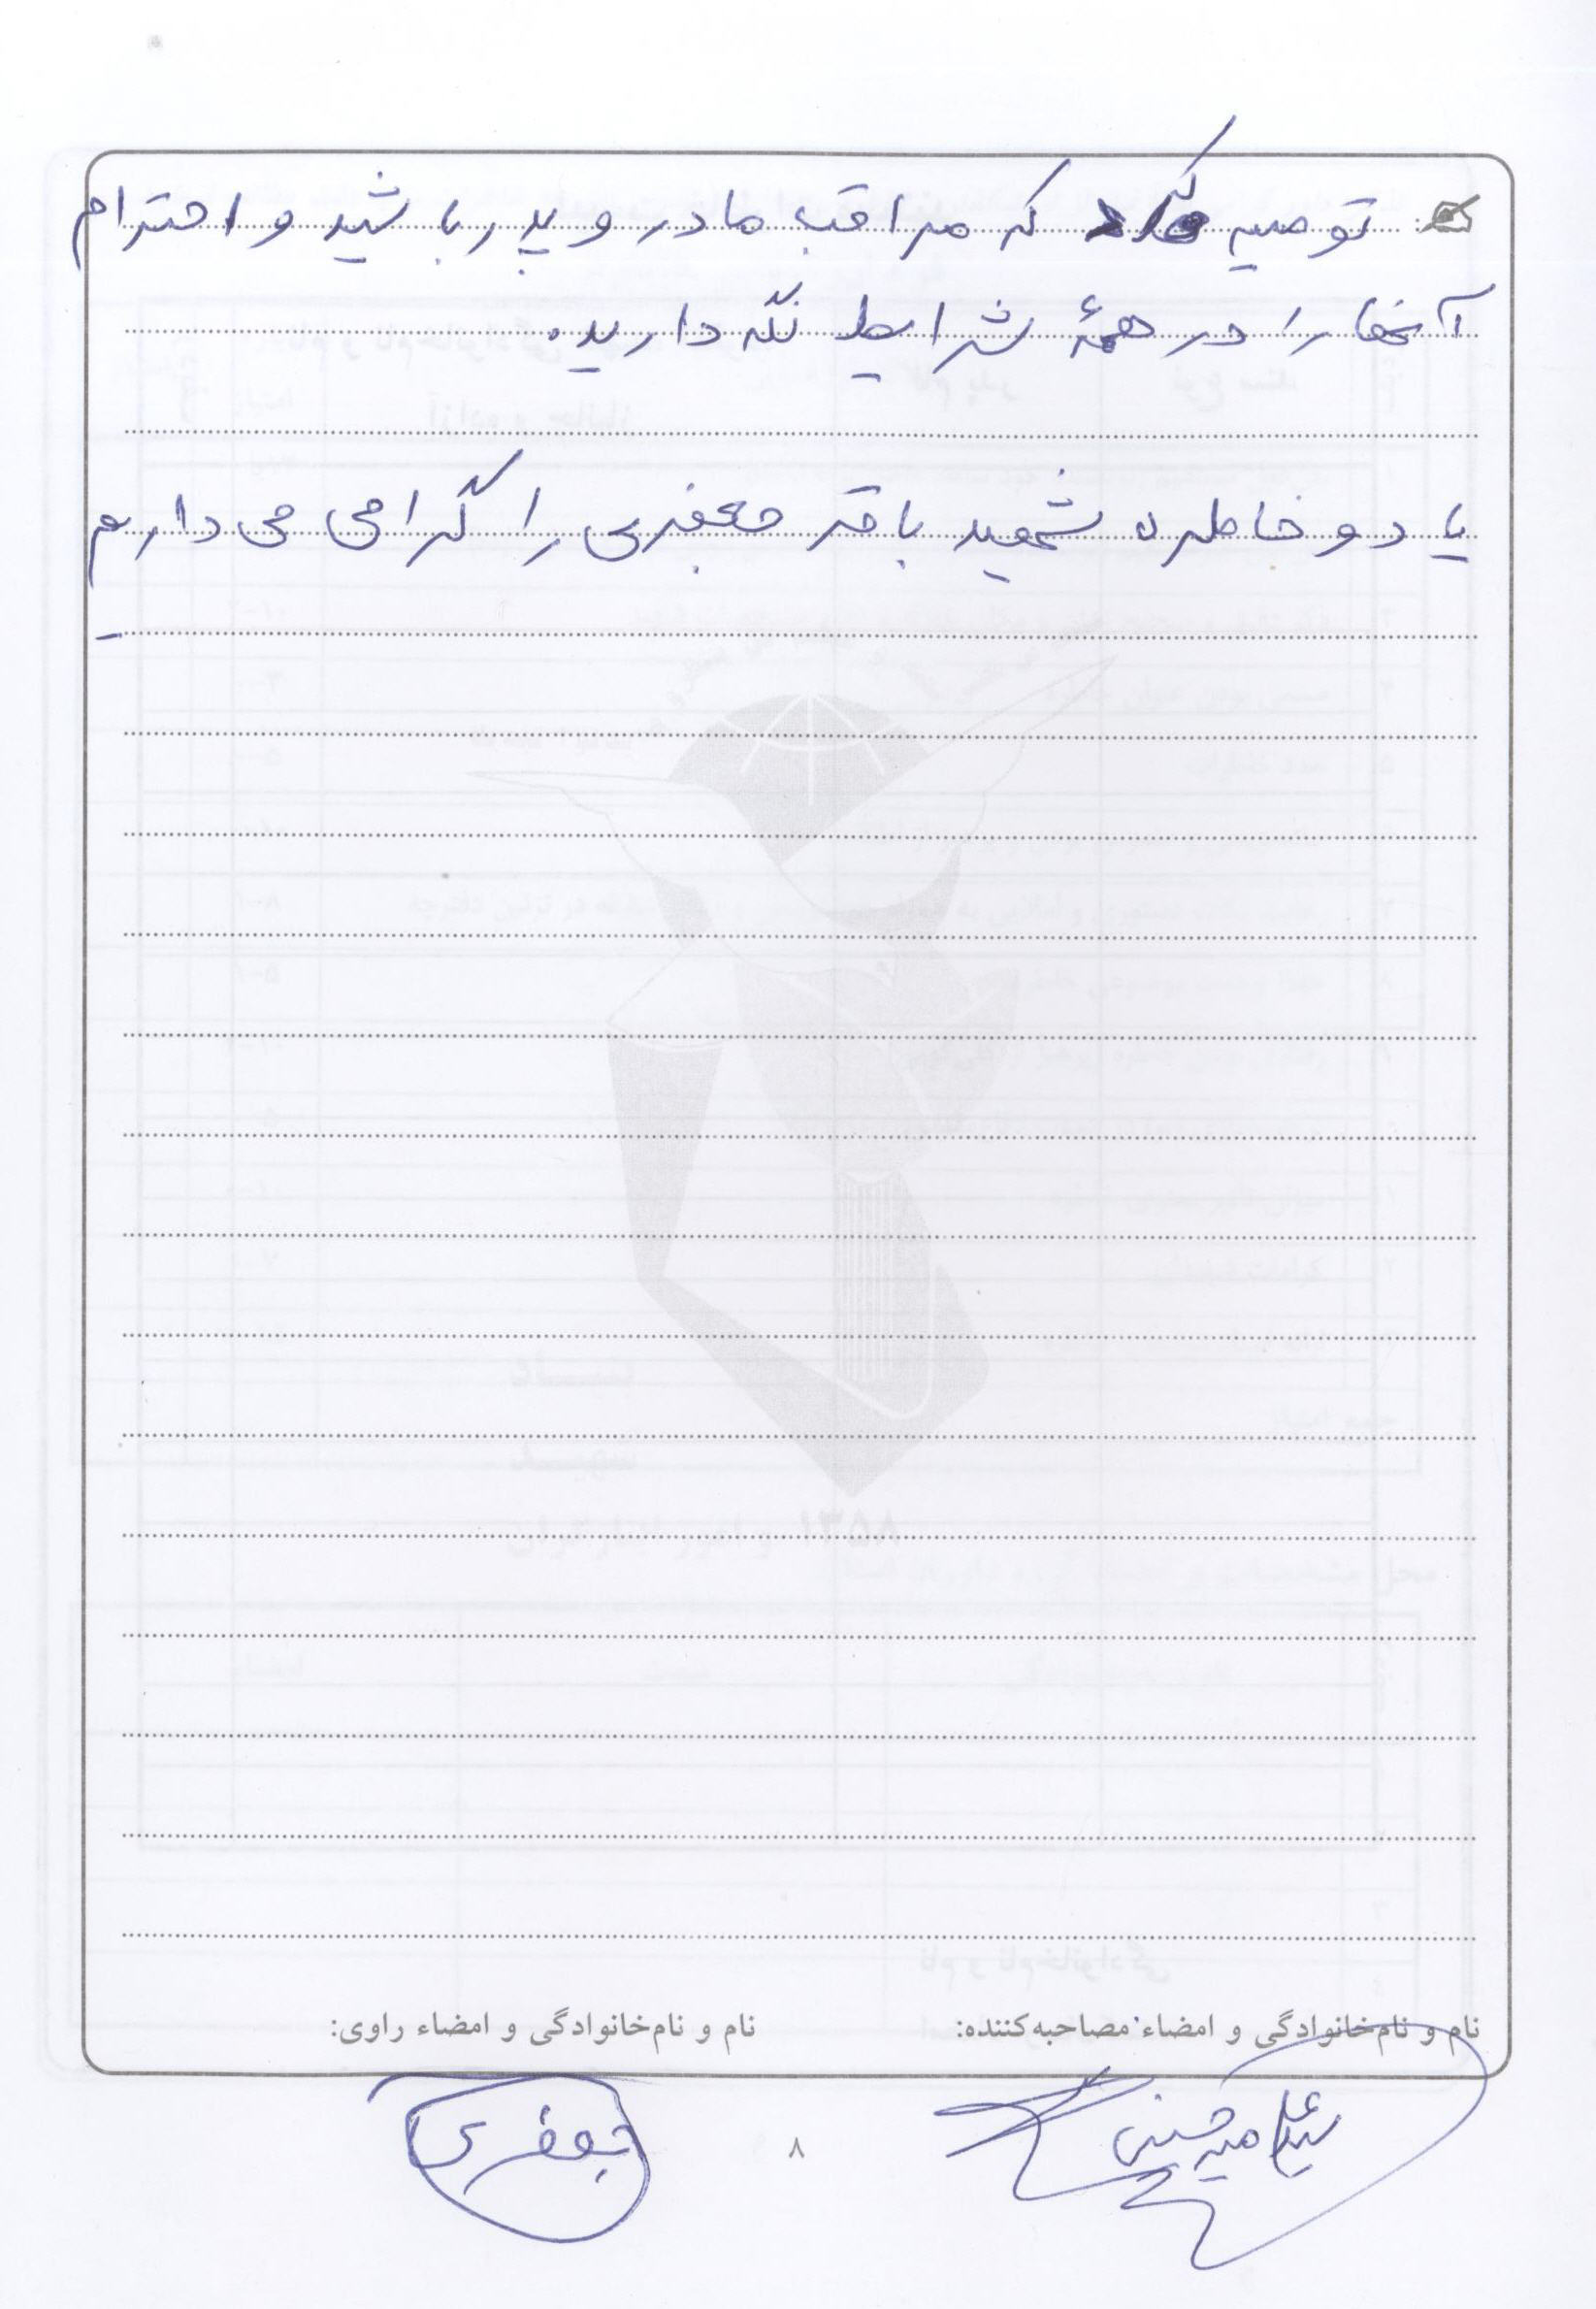 توصیه کرد که مراقب مادر و پدر باشید و احترام
آنها را در همهٔ شرایط نگه دارید.
یاد و خاطره شهید باقر جعفری را گرامی می داریم
نام و نام‌خانوادگی و امضاء مصاحبه‌کننده:
نام و نام‌خانوادگی و امضاء راوی:
سید علی میرحسینی
جعفری
۸